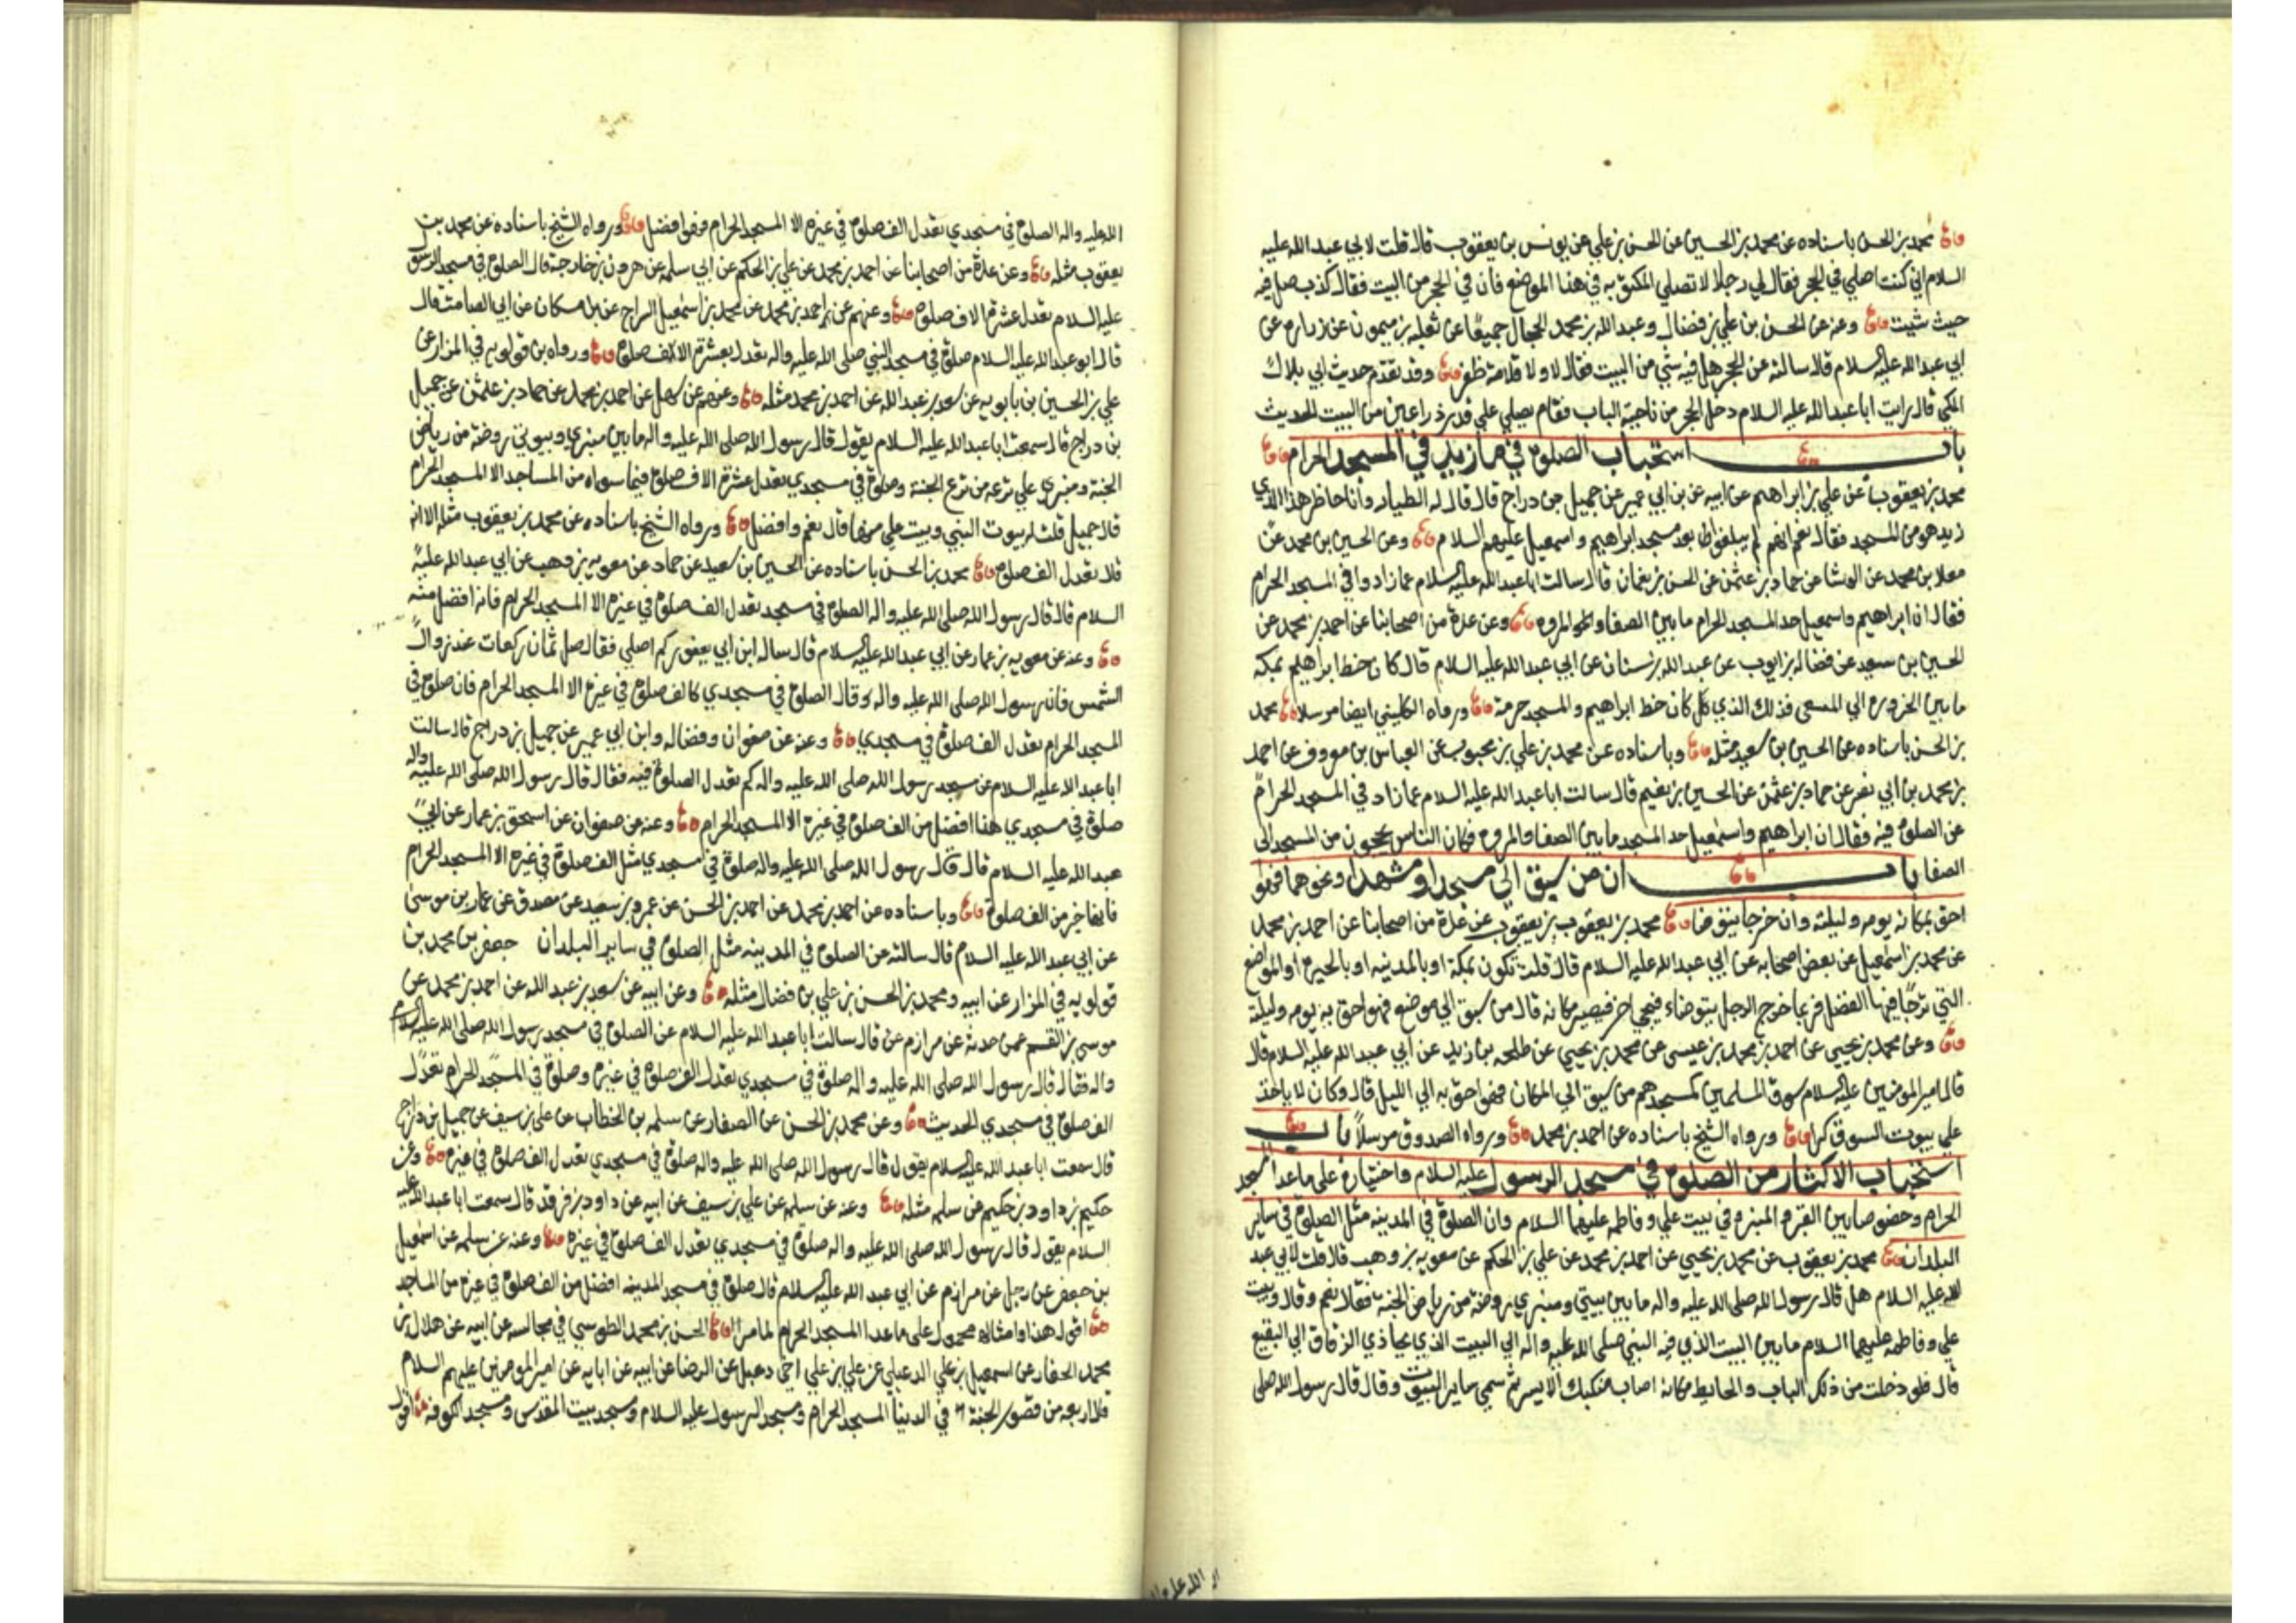 محمد بن الحسن باسناده عن محمد بن الحسين عن الحسن بن علي عن يونس بن يعقوب قال قلت لابي عبد الله عليه
السلام اني كنت اصلي في الحجر فقال لي رجل لا تصلي المكتوبة في هذا الموضع فان في الحجر من البيت فقال كذب صل فيه
حيث شيت وعنه عن الحسن بن علي بن فضال وعبد الله بن محمد الحجال جميعا عن ثعلبه بن ميمون عن زراره عن
ابي عبد الله عليه السلام قال سالته عن الحجر هل فيه شي من البيت فقال لا ولا قلامة ظفر وقد تقدم حديث ابي بلال
المكي قال رايت ابا عبد الله عليه السلام دخل الحجر من ناحية الباب فقام يصلي علي قدر ذراعين من البيت الحديث
باب استحباب الصلوة في ما زيد في المسجد الحرام
محمد بن يعقوب عن علي بن ابراهيم عن ابيه عن بن ابي عمير عن جميل بن دراج قال قال له الطيار وانا حاظر هذا الذي
زيد هو من المسجد فقال نعم انهم لم يبلغوا بعد مسجد ابراهيم واسمعيل عليهم السلام وعن الحسين بن محمد عن
معلا بن محمد عن الوشا عن حماد بن عثمن عن الحسن بن نعمان قال سالت ابا عبد الله عليه السلام عما زادوا في المسجد الحرام
فقال ان ابراهيم واسمعيل حد المسجد الحرام ما بين الصفا والمروه وعن عدة من اصحابنا عن احمد بن محمد عن
الحسين بن سعيد عن فضاله بن ايوب عن عبد الله بن سنان عن ابي عبد الله عليه السلام قال كان خط ابراهيم بمكه
ما بين الحزوره الي المسعي فذلك الذي كان خط ابراهيم والمسجد ورواه الكليني ايضا مرسلا محمد
بن الحسن باسناده عن الحسين بن سعيد مثله وباسناده عن محمد بن علي بن محبوب عن العباس بن معروف عن احمد
بن محمد بن ابي نصر عن حماد بن عثمن عن الحسين بن نعيم قال سالت ابا عبد الله عليه السلام عما زاد في المسجد الحرام
عن الصلوة فيه فقال ان ابراهيم واسمعيل حد المسجد ما بين الصفا والمروه فكان الناس يحجون من المسجد الى
الصفا باب ان من سبق الى مسجد او مشهد ونحوهما فهو
احق بمكانه يومه وليلته وان خرج يتوضا محمد بن يعقوب عن عدة من اصحابنا عن احمد بن محمد
عن محمد بن اسمعيل عن بعض اصحابه عن ابي عبد الله عليه السلام قال قلت نكون بمكة او بالمدينه او بالحيرة او المواضع
التي يرجا فيها الفضل فربما خرج الرجل يتوضاء فيجي اخر فيصير مكانه قال من سبق الي موضع فهو احق به يومه وليلته
وعن محمد بن يحيي عن احمد بن محمد بن عيسي عن محمد بن يحيي عن طلحه بن زيد عن ابي عبد الله عليه السلام قال
قال امير المومنين عليه السلام سوق المسلمين كمسجدهم من سبق الي المكان فهو احق به الي الليل قال وكان لا ياخذ
علي بيوت السوق كرا ورواه الشيخ باسناده عن احمد بن محمد ورواه الصدوق مرسلا باب
استحباب الاكثار من الصلوة في مسجد الرسول عليه السلام واختياره على ما عدا المسجد
الحرام وخصوصا بين القبر والمنبر وفي بيت علي وفاطمه عليهما السلام وان الصلوة في المدينه مثل الصلوة في ساير
البلدان محمد بن يعقوب عن محمد بن يحيي عن احمد بن محمد عن علي بن الحكم عن معويه بن وهب قال قلت لابي عبد
الله عليه السلام هل قال رسول الله صلى الله عليه واله ما بين بيتي ومنبري روضة من رياض الجنة فقال نعم وقال وبيت
علي وفاطمه عليهما السلام ما بين البيت الذي فيه النبي صلى الله عليه واله الي البيت الذي يحاذي الزقاق الي البقيع
قال فلو دخلت من ذلك الباب والحايط مكانه اصاب منكبك الايسر ثم سمي ساير البيوت وقال قال رسول الله صلى
الله عليه واله الصلوة في مسجدي تعدل الف صلوة في غيره الا المسجد الحرام فهو افضل ورواه الشيخ باسناده عن محمد بن
يعقوب مثله وعن عدة من اصحابنا عن احمد بن محمد عن علي بن الحكم عن ابي سلمه عن هرون بن خارجة قال الصلوة في مسجد الرسول
عليه السلام تعدل عشرة الاف صلوة وعنهم عن احمد بن محمد عن محمد بن اسمعيل السراج عن بن مسكان عن ابي الصامت قال
قال ابو عبد الله عليه السلام صلوة في مسجد النبي صلى الله عليه واله تعدل بعشرة الاف صلوة ورواه بن قولويه في المزار عن
علي بن الحسين بن بابويه عن سعد بن عبد الله عن احمد بن محمد مثله وعنهم عن سهل عن احمد بن محمد عن حماد بن عثمن عن جميل
بن دراج قال سمعت ابا عبد الله عليه السلام يقول قال رسول الله صلى الله عليه واله ما بين منبري وبيوتي روضة من رياض
الجنة ومنبري علي ترعه من ترع الجنة وصلوة في مسجدي تعدل عشرة الاف صلوة فيما سواه من المساجد الا المسجد الحرام
قال جميل قلت له بيوت النبي وبيت علي منها قال نعم وافضل ورواه الشيخ باسناده عن محمد بن يعقوب مثله الا انه
قال تعدل الف صلوة محمد بن الحسن باسناده عن الحسين بن سعيد عن حماد عن معويه بن وهب عن ابي عبد الله عليه
السلام قال قال رسول الله صلى الله عليه واله الصلوة في مسجدي تعدل الف صلوة في غيره الا المسجد الحرام فانه افضل منه
وعنه عن معويه بن عمار عن ابي عبد الله عليه السلام قال ساله ابن ابي يعفور كم اصلي فقال صل ثمان ركعات عند زوال
الشمس فان رسول الله صلى الله عليه واله قال الصلوة في مسجدي كالف صلوة في غيره الا المسجد الحرام فان صلوة في
المسجد الحرام تعدل الف صلوة في مسجدي وعنه عن صفوان وفضاله وابن ابي عمير عن جميل بن دراج قال سالت
ابا عبد الله عليه السلام عن مسجد رسول الله صلى الله عليه واله كم تعدل الصلوة فيه فقال قال رسول الله صلى الله عليه واله
صلوة في مسجدي هذا افضل من الف صلوة في غيره الا المسجد الحرام وعنه عن صفوان عن اسحق بن عمار عن ابي
عبد الله عليه السلام قال قال رسول الله صلى الله عليه واله صلوة في مسجدي مثل الف صلوة في غيره الا المسجد الحرام
فانها خير من الف صلوة وباسناده عن احمد بن محمد عن احمد بن الحسن عن عمرو بن سعيد عن مصدق عن عمار بن موسى
عن ابي عبد الله عليه السلام قال سالته عن الصلوة في المدينه مثل الصلوة في ساير البلدان جعفر بن محمد بن
قولويه في المزار عن ابيه ومحمد بن الحسن عن علي بن فضال مثله وعن ابيه عن سعد بن عبد الله عن احمد بن محمد عن
موسى بن القسم عمن حدثه عن مرازم قال سالت ابا عبد الله عليه السلام عن الصلوة في مسجد رسول الله صلى الله عليه
واله فقال قال رسول الله صلى الله عليه واله صلوة في مسجدي تعدل الف صلوة في غيره وصلوة في المسجد الحرام تعدل
الف صلوة في مسجدي الحديث وعن محمد بن الحسن عن الصفار عن سلمه بن الخطاب عن علي بن سيف عن جميل بن دراج
قال سمعت ابا عبد الله عليه السلام يقول قال رسول الله صلى الله عليه واله صلوة في مسجدي تعدل الف صلوة في غيره وعن
حكيم بن داود بن حكيم عن سلمه مثله وعنه عن سلمه عن علي بن سيف عن ابيه عن داود بن فرقد قال سمعت ابا عبد الله عليه
السلام يقول قال رسول الله صلى الله عليه واله صلوة في مسجدي تعدل الف صلوة في غيره وعنه عن سلمه عن اسمعيل
بن جعفر عن رجل عن مرازم عن ابي عبد الله عليه السلام قال صلوة في مسجد المدينه افضل من الف صلوة في غيره من المساجد
اقول هذا وامثاله محمول على ما عدا المسجد الحرام لما مر الحسن بن محمد الطوسي في مجالسه عن ابيه عن هلال بن
محمد الحفار عن اسمعيل بن علي الدعبلي عن علي بن علي اخي دعبل عن الرضا عن ابيه عن ابايه عن امير المومنين عليهم السلام
قال اربعه من قصور الجنة في الدنيا المسجد الحرام ومسجد الرسول عليه السلام ومسجد بيت المقدس ومسجد الكوفه اقول